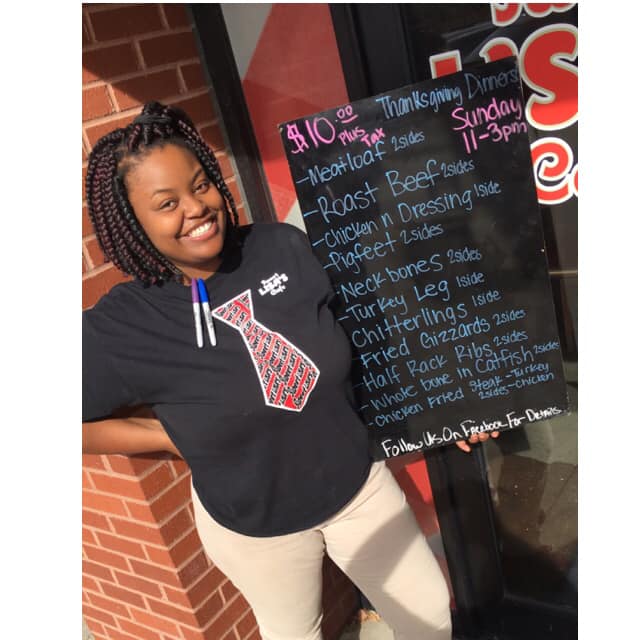 $10.00 Plus Tax
Thanksgiving Dinners
Sunday
11-3pm
-Meatloaf 2sides
-Roast Beef 2sides
-Chicken n Dressing 1side
-Pigfeet 2sides
-Neckbones 2sides
-Turkey Leg 1side
-Chitterlings 1side
-Fried Gizzards 2sides
-Half Rack Ribs 2sides
-Whole bone in Catfish 2sides
-Chicken Fried Steak -Turkey
2sides -Chicken
Follow Us On Facebook For Details
LISA'S
Cafe